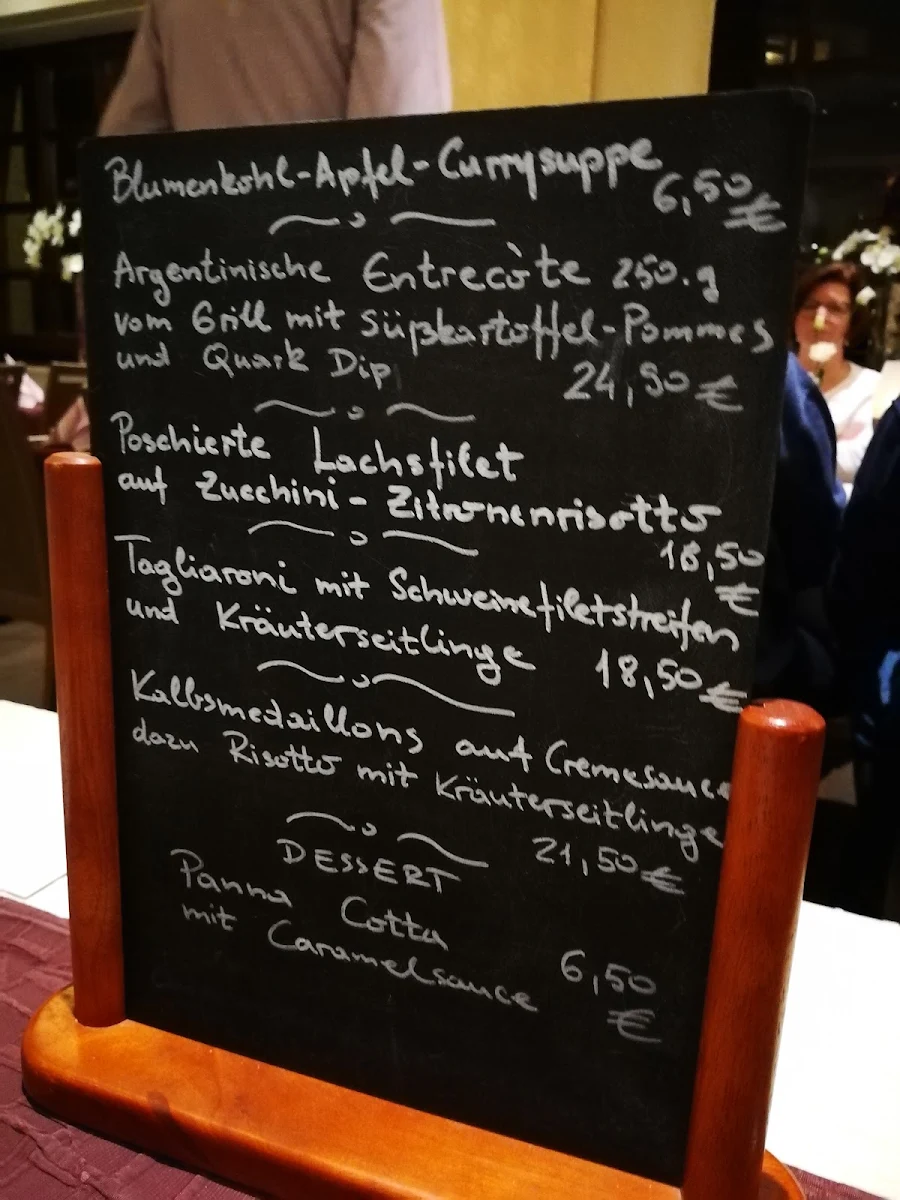 Blumenkohl-Apfel-Currysuppe
6,50 €
Argentinische Entrecòte 250.g
vom Grill mit Süßkartoffel-Pommes
und Quark Dip 24,90 €
Poschierte Lachsfilet
auf Zucchini - Zitronenrisotto
18,50
€
Tagliaroni mit Schweinefiletstreifen
und Kräuterseitlinge 18,50 €
Kalbsmedaillons auf Cremesauce
dazu Risotto mit Kräuterseitlinge
21,50 €
DESSERT
Panna Cotta
mit Caramelsauce 6,50
€